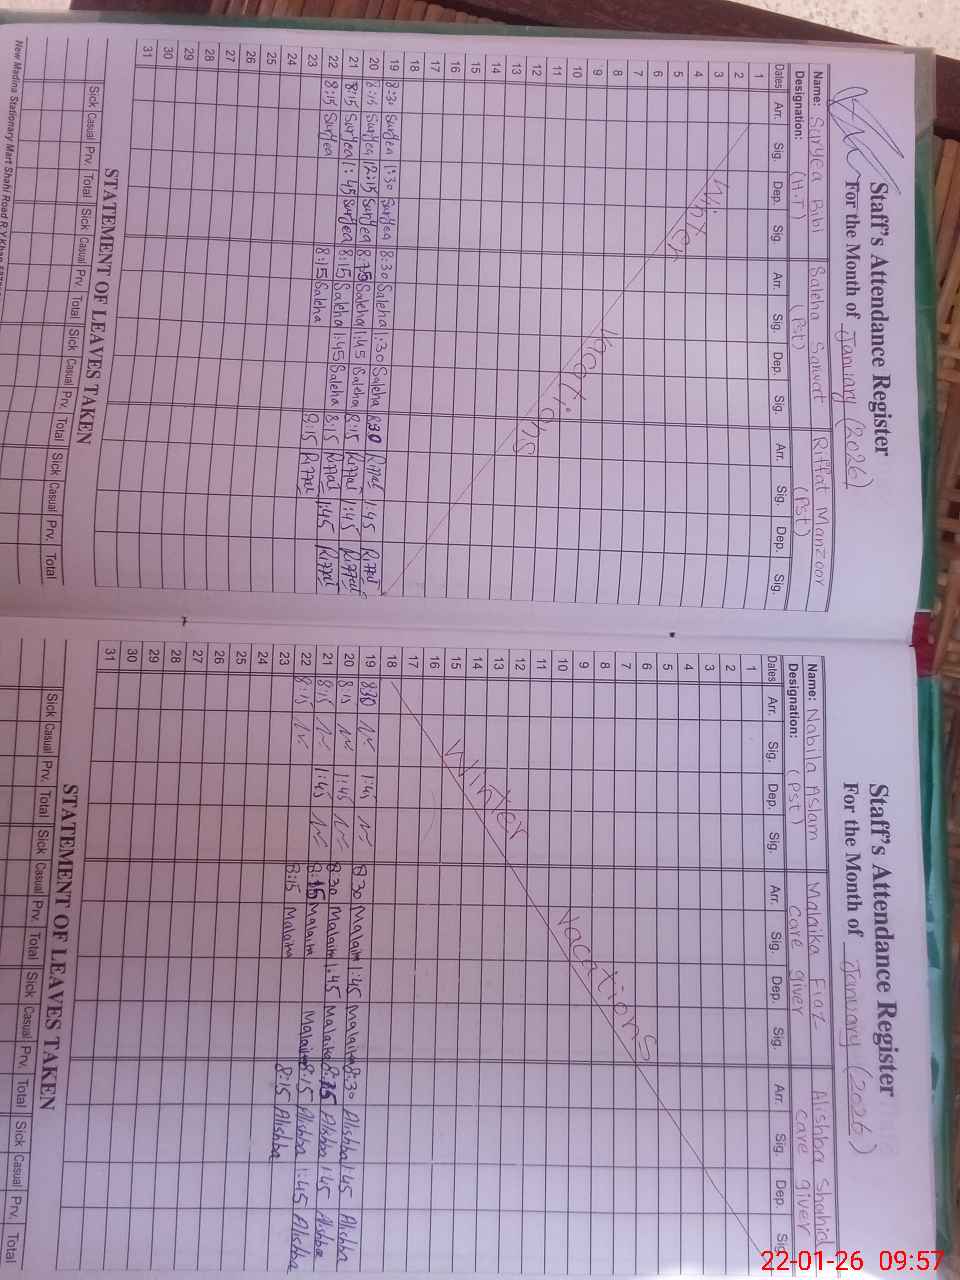 Staff's Attendance Register
For the Month of January (2026)
Name: Suryea Bibi Saleha Sarwat Riffat Manzoor
Designation: (H.T) (Pst) (Pst)
Dates Arr. Sig. Dep. Sig. Arr. Sig. Dep. Sig. Arr. Sig. Dep. Sig.
1
2
3
4
5
6
7
8
9
10
11
12
13
14
15
16
17
18
Winter Vacations
19 8:30 Suryea 1:30 Suryea 8:30 Saleha 1:30 Saleha 830 Riffat 1:45 Riffat
20 8:15 Suryea 12:15 Suryea Saleha 1:45 Saleha 8:15 Riffat 1:45 Riffat
21 8:15 Suryea 1:45 Suryea 8:15 Saleha 1:45 Saleha 8:15 Riffat 1:45 Riffat
22 8:15 Suryea 8:15 Saleha 8:15 Riffat
23
24
25
26
27
28
29
30
31
STATEMENT OF LEAVES TAKEN
Sick Casual Prv. Total Sick Casual Prv. Total Sick Casual Prv. Total Sick Casual Prv. Total
New Madina Stationary Mart Shahi Road R.Y.Khan
Staff's Attendance Register
For the Month of January (2026)
Name: Nabila Aslam Malaika Fiaz Alishba Shahid
Designation: (Pst) Care giver Care giver
Dates Arr. Sig. Dep. Sig. Arr. Sig. Dep. Sig. Arr. Sig. Dep. Sig.
1
2
3
4
5
6
7
8
9
10
11
12
13
14
15
16
17
18
Winter Vacations
19 830 1:45 8:30 Malaika 1:45 Malaika 8:30 Alishba 1:45 Alishba
20 8:15 1:45 8:30 Malaika 1:45 Malaika Alishba 1:45 Alishba
21 8:15 1:45 Malaika Malaika 8:15 Alishba 1:45 Alishba
22 8:15 8:15 Malaika 8:15 Alishba
23
24
25
26
27
28
29
30
31
STATEMENT OF LEAVES TAKEN
Sick Casual Prv. Total Sick Casual Prv. Total Sick Casual Prv. Total Sick Casual Prv. Total
22-01-26 09:57